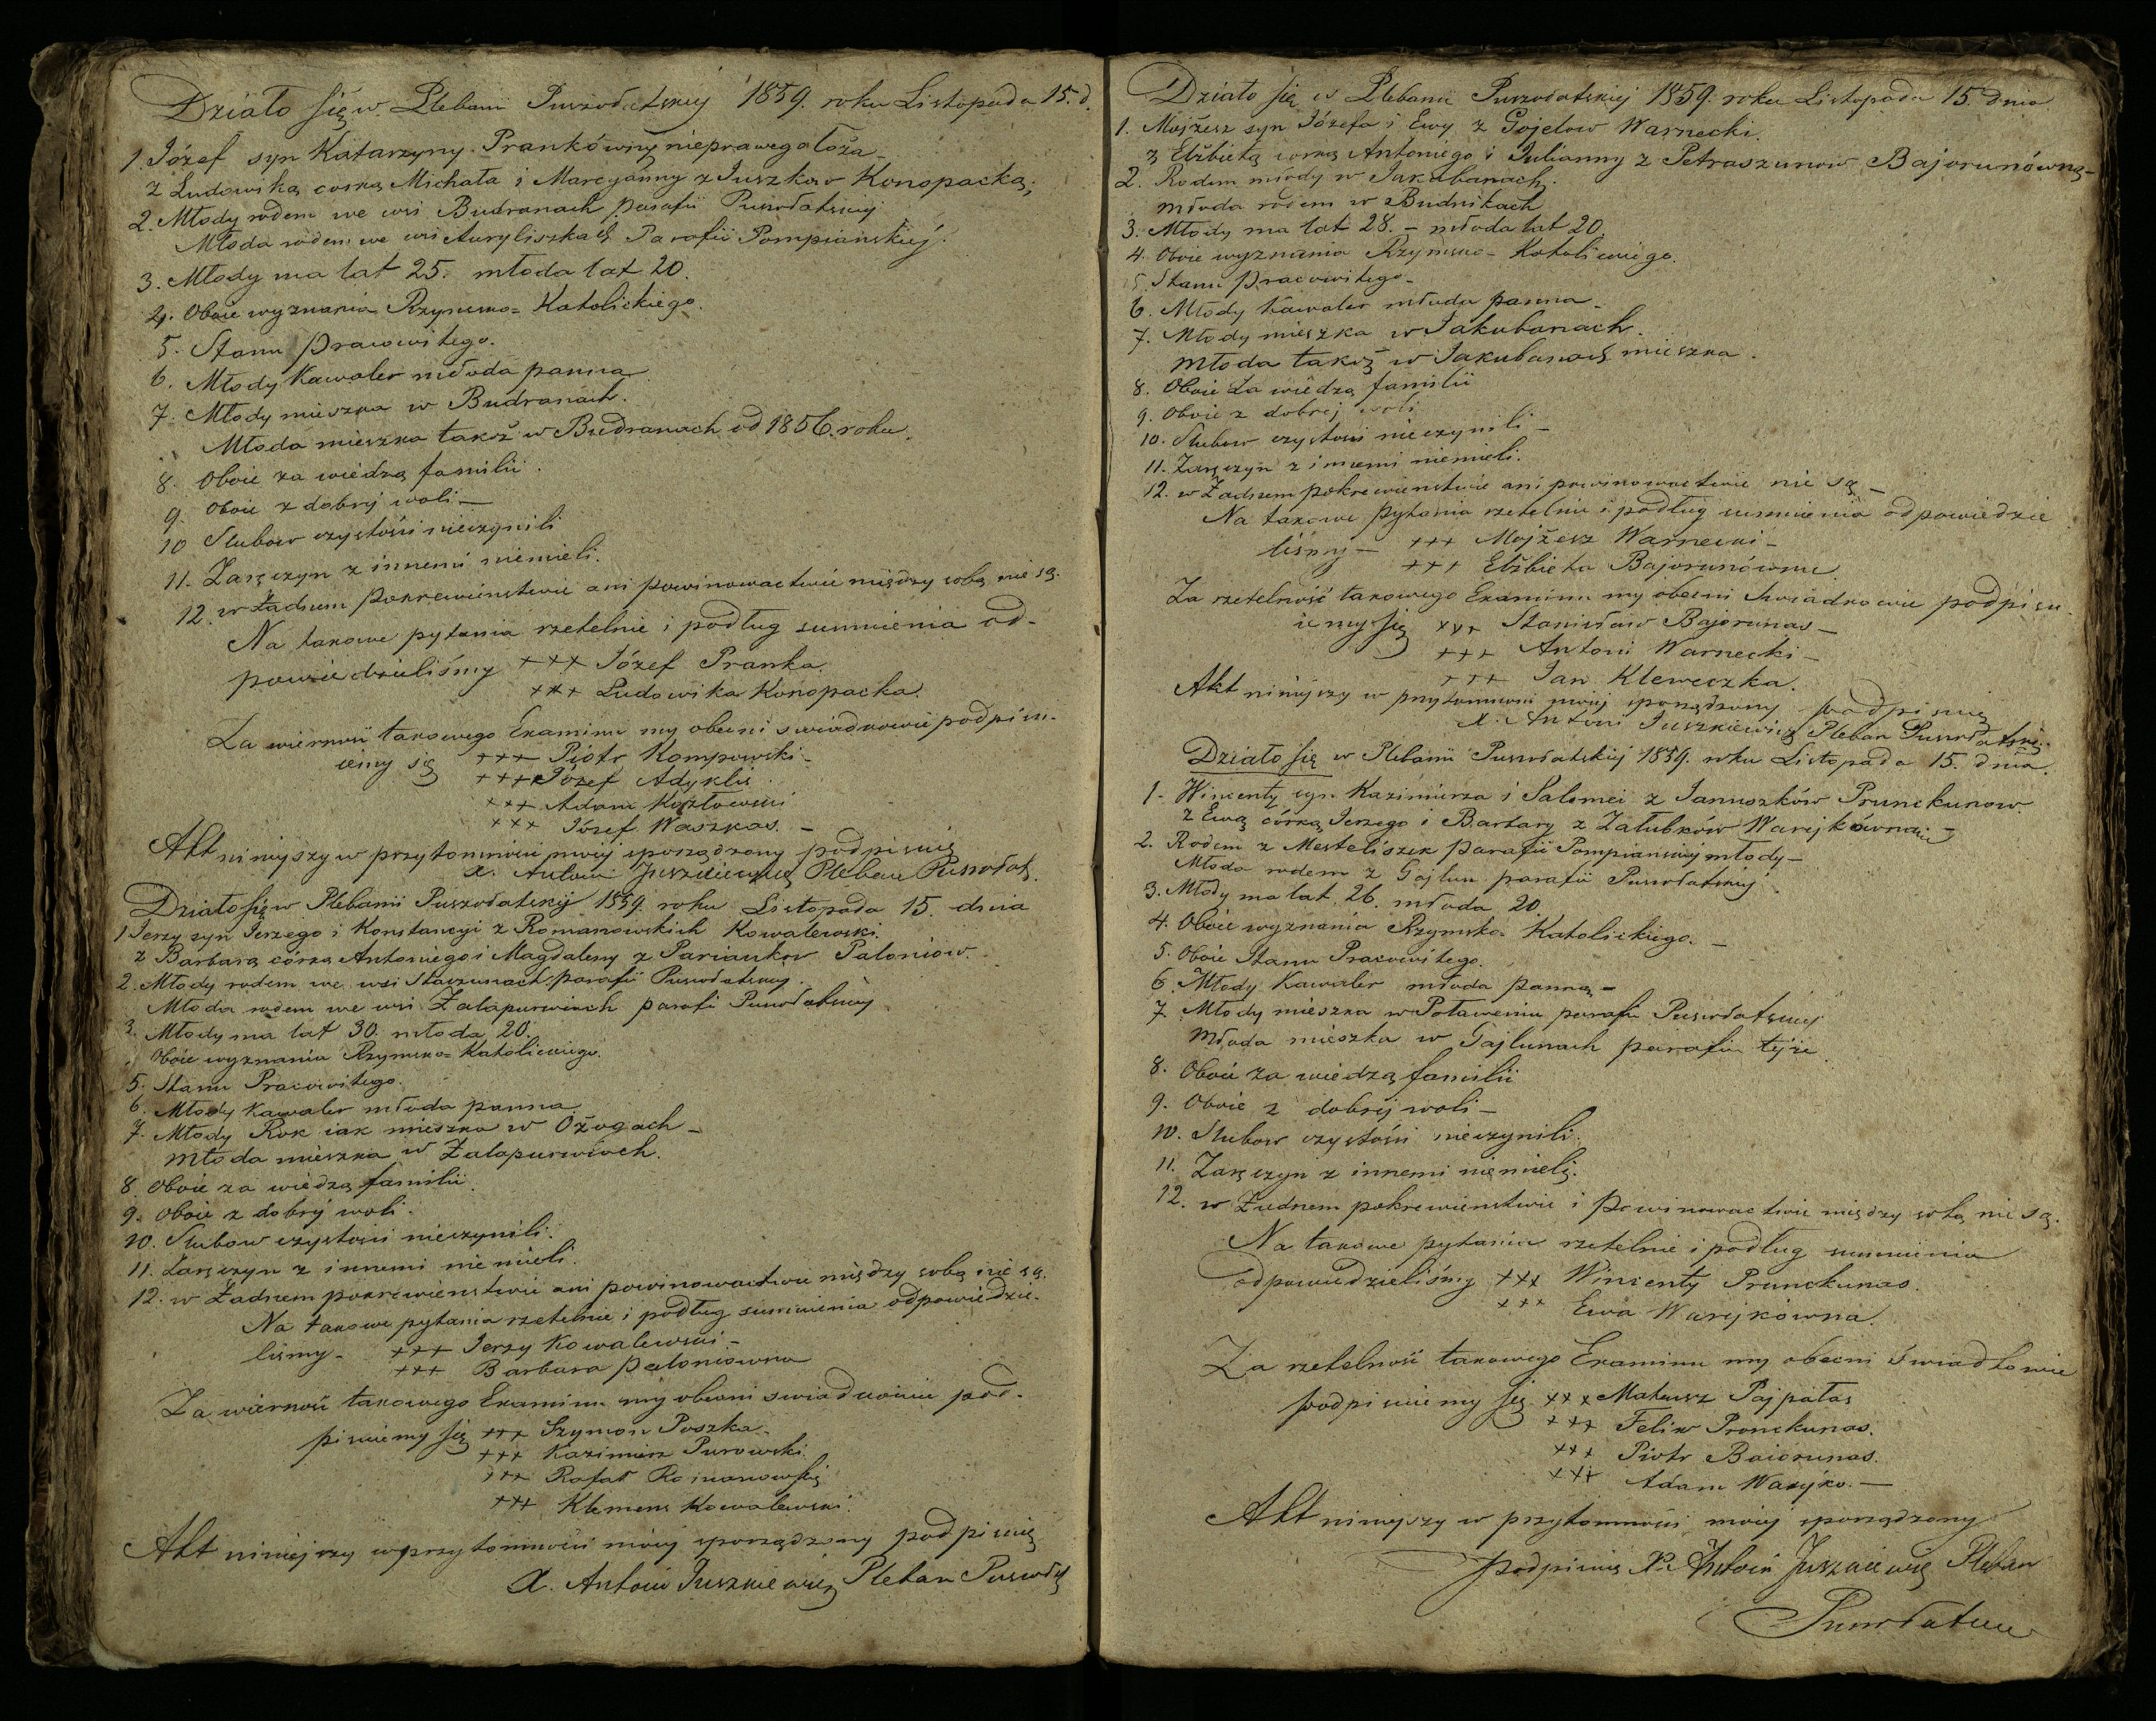 Działo się w Plebanii Puszołatskiej 1859. roku Listopada 15. d.
1. Józef syn Katarzyny Prankówny nieprawego łoża
z Ludowiką corką Michała i Marcyanny z Juszkow Konopacką;
2. Młody rodem we wsi Budranach parafii Puszołatskiej
Młoda rodem we wsi Auryliszkach Parafii Pompianskiej.
3. Młody ma lat 25. młoda lat 20.
4. Oboie wyznania Rzymsko-Katolickiego.
5. Stanu pracowitego.
6. Młody Kawaler młoda panna
7. Młody mieszka w Budranach.
Młoda mieszka takoż w Budranach od 1856. roku.
8. Oboie za wiedzą familii.
9. Oboie z dobrej woli —
10 Slubow czystości nieczynili
11. Zaręczyn z innemi niemieli.
12. w Żadnem pokrewienstwie ani powinowactwie między sobą nie są.
Na takowe pytania rzetelnie i podług sumnienia od-
powiedzieliśmy +++ Józef Pranka.
+++ Ludowika Konopacka.
Za wierność takowego Examinu my obecni swiadkowie podpisu-
iemy się +++ Piotr Kompowski —
+++ Józef Adyklis
+++ Adam Kozłowski
+++ Józef Waszkas. —
Akt niniejszy w przytomności mojej sporządzony podpisuię
X. Antoni Juszkiewicz Pleban Puszołat.
Działo się w Plebanii Puszołatskiej 1859. roku Listopada 15. dnia
1 Jerzy syn Jerzego i Konstancyi z Romanowskich Kowalewski.
z Barbarą córką Antoniego i Magdaleny z Pariankow Paloniow.
2. Młody rodem we wsi Staszunach parafii Puszołatskiej.
Młoda rodem we wsi Żalapurwiach parafi Puszołatskiej
3. Młody ma lat 30. młoda 20.
Oboie wyznania Rzymsko-Katolickiego.
5. Stanu Pracowitego.
6. Młody Kawaler młoda panna
7. Młody Rok iak mieszka w Ożogach —
Młoda mieszka w Żalapurwiach.
8. Oboie za wiedzą familii.
9. Oboie z dobrej woli.
10. Slubow czystosci nieczynili.
11. Zaręczyn z innemi nie mieli.
12. w Żadnem pokrewienstwie ani powinowactwie między sobą nie są.
Na takowe pytania rzetelnie i podług sumnienia odpowiedzie-
liśmy — +++ Jerzy Kowalewski —
+++ Barbara Paloniowna
Za wierność takowego Examinu my obecni swiadkowie pod-
pisuiemy się +++ Szymon Poszka —
+++ Kazimierz Purowski.
+++ Rafał Romanowski
+++ Klemens Kowalewski.
Akt niniejszy w przytomności mojej sporządzony podpisuię
X. Antoni Juszkiewicz Pleban Puszołat
Działo się w Plebanii Puszołatskiej 1859. roku Listopada 15. dnia
1. Mojżesz syn Józefa i Ewy z Gojelow Warnecki.
z Elżbietą corką Antoniego i Julianny z Petraszunow Bajorunówną —
2. Rodem młody w Jakubanach.
młoda rodem w Budnikach
3. Młody ma lat 28. — młoda lat 20.
4. Oboie wyznania Rzymsko-Katolickiego.
5. Stanu pracowitego —
6. Młody Kawaler młoda panna —
7. Młody mieszka w Jakubanach.
Młoda takoż w Jakubanach mieszka.
8. Oboie za wiedzą familii
9. Oboie z dobrej woli
10. Slubow czystosci nieczynili —
11. Zaręczyn z innemi niemieli.
12. w Żadnem pokrewienstwie ani powinowactwie nie są —
Na takowe pytania rzetelnie i podług sumnienia odpowiedzie
liśmy — +++ Mojżesz Warnecki —
+++ Elżbieta Bajorunówna.
Za rzetelność takowego Examinu my obecni swiadkowie podpisu
iemy się +++ Stanisław Bajorunas —
+++ Antoni Warnecki —
+++ Jan Kleweczka.
Akt niniejszy w przytomności mojej sporządzony podpisuię
X. Antoni Juszkiewicz Pleban Puszołatski.
Działo się w Plebanii Puszołatskiej 1859. roku Listopada 15. dnia.
1. Wincenty syn Kazimierza i Salomei z Januszków Prunckunow
z Ewą córką Jerzego i Barbary z Załubków Warejkówną —
2. Rodem z Mesteliszek parafii Pompianskiej młody —
Młoda rodem z Gajlun parafii Puszołatskiej
3. Młody ma lat 26. młoda 20.
4. Oboie wyznania Rzymsko-Katolickiego. —
5. Oboie Stanu Pracowitego.
6. Młody Kawaler młoda panna —
7. Młody mieszka w Poławeniu parafii Puszołatskiej
Młoda mieszka w Gajlunach parafii tejże.
8. Oboie za wiedzą familii
9. Oboie z dobrej woli —
10. Slubow czystości nieczynili.
11. Zaręczyn z innemi niemieli.
12. w Żadnem pokrewienstwie i powinowactwie między sobą nie są.
Na takowe pytania rzetelnie i podług sumnienia
odpowiedzieliśmy +++ Wincenty Prunckunas.
+++ Ewa Warejkówna
Za rzetelność takowego Examinu my obecni Świadkowie
podpisuiemy się +++ Mateusz Pajpałas
+++ Felix Pronckunas.
+++ Piotr Baiorunas.
+++ Adam Warejko. —
Akt niniejszy w przytomności mojej sporządzony
podpisuię X. Antoni Juszkiewicz Pleban
Puszołatski